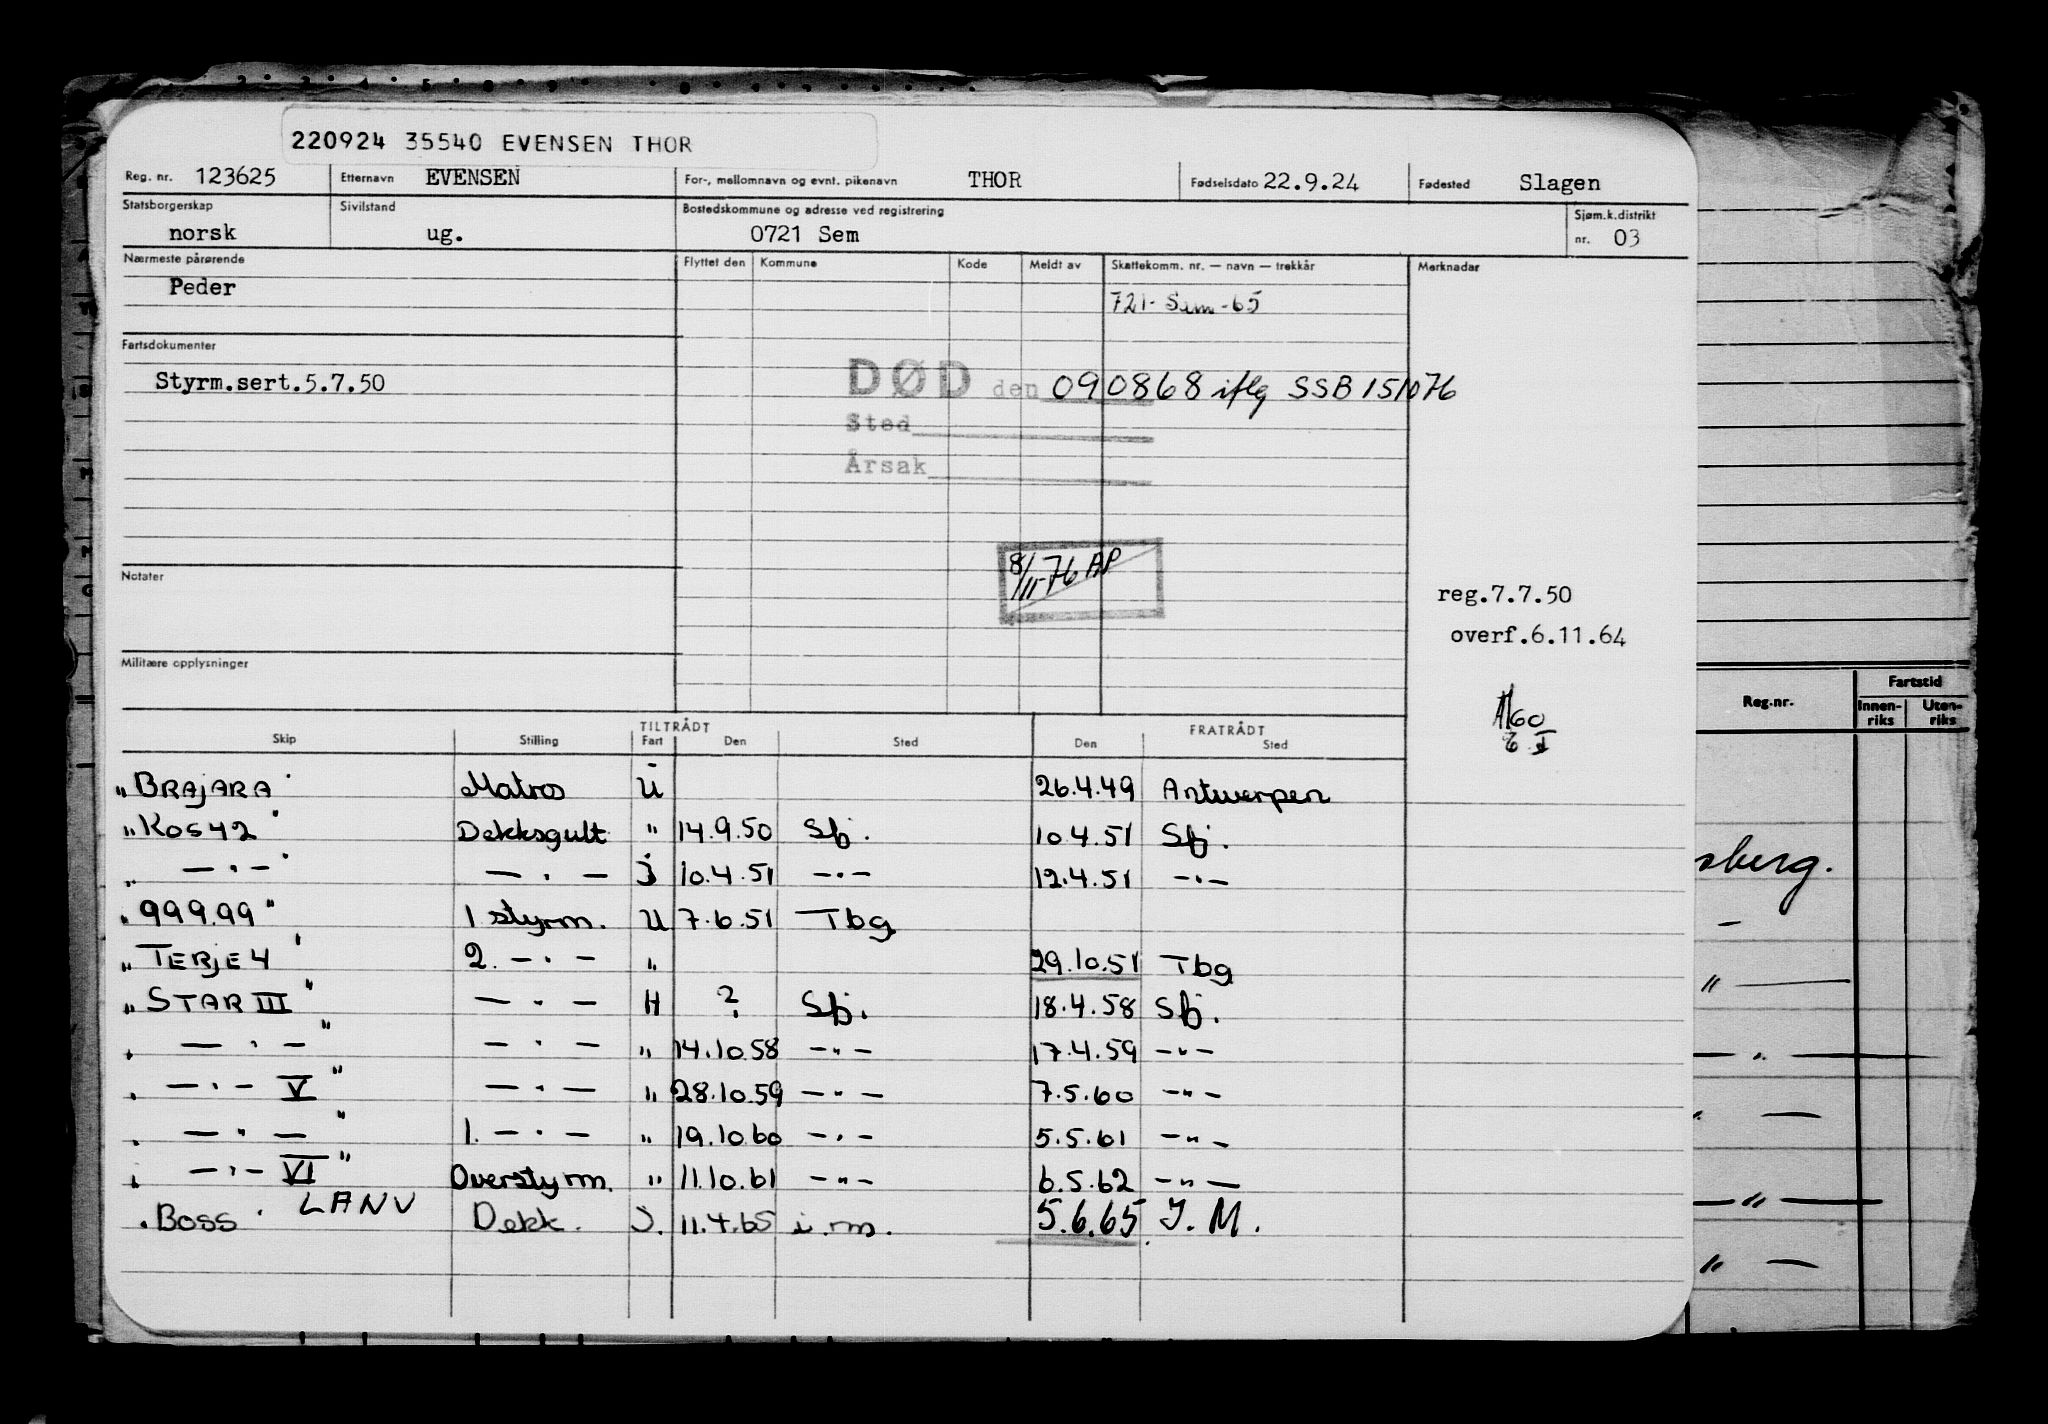 220924 35540 EVENSEN THOR
Reg. nr. 123625 Etternavn EVENSEN For-, mellomnavn og evnt. pikenavn THOR Fødselsdato 22.9.24 Fødested Slagen
Statsborgerskap Sivilstand Bostedskommune og adresse ved registrering Sjøm.k.distrikt
norsk ug. 0721 Sem nr. 03
Nærmeste pårørende Flyttet den Kommune Kode Meldt av Skattekomm. nr. — navn — trekkår Merknader
Peder
721- Sem -65
Fartsdokumenter
Styrm.sert.5.7.50
DØD den 090868 iflg SSB 151076
Sted
Årsak
8/11-76 AP
Notater
reg.7.7.50
overf.6.11.64
Militære opplysninger
TILTRÅDT FRATRÅDT
Skip Stilling Fart Den Sted Den Sted
Reg.nr. Fartstid
Innen-riks Uten-riks
"BRAJARA" Matros U 26.4.49 Antwerpen
"KOS 42" Dekksgutt " 14.9.50 Sfj. 10.4.51 Sfj.
" — " — " — " — J 10.4.51 — " — 12.4.51 — " —
"999.99" 1 styrm. U 7.6.51 Tbg
"TERJE 4" 2. — " — " 29.10.51 Tbg
"STAR III" — " — H ? Sfj. 18.4.58 Sfj.
" — " — " — " — " 14.10.58 — " — 17.4.59 — " —
" — " — V" — " — " 28.10.59 — " — 7.5.60 — " —
" — " — " 1. — " — " 19.10.60 — " — 5.5.61 — " —
" — " — VI" Overstyrm. " 11.10.61 — " — 6.5.62 — " —
"BOSS" LANV Dekk. J. 11.4.65 i.m. 5.6.65 I.M.
sberg.